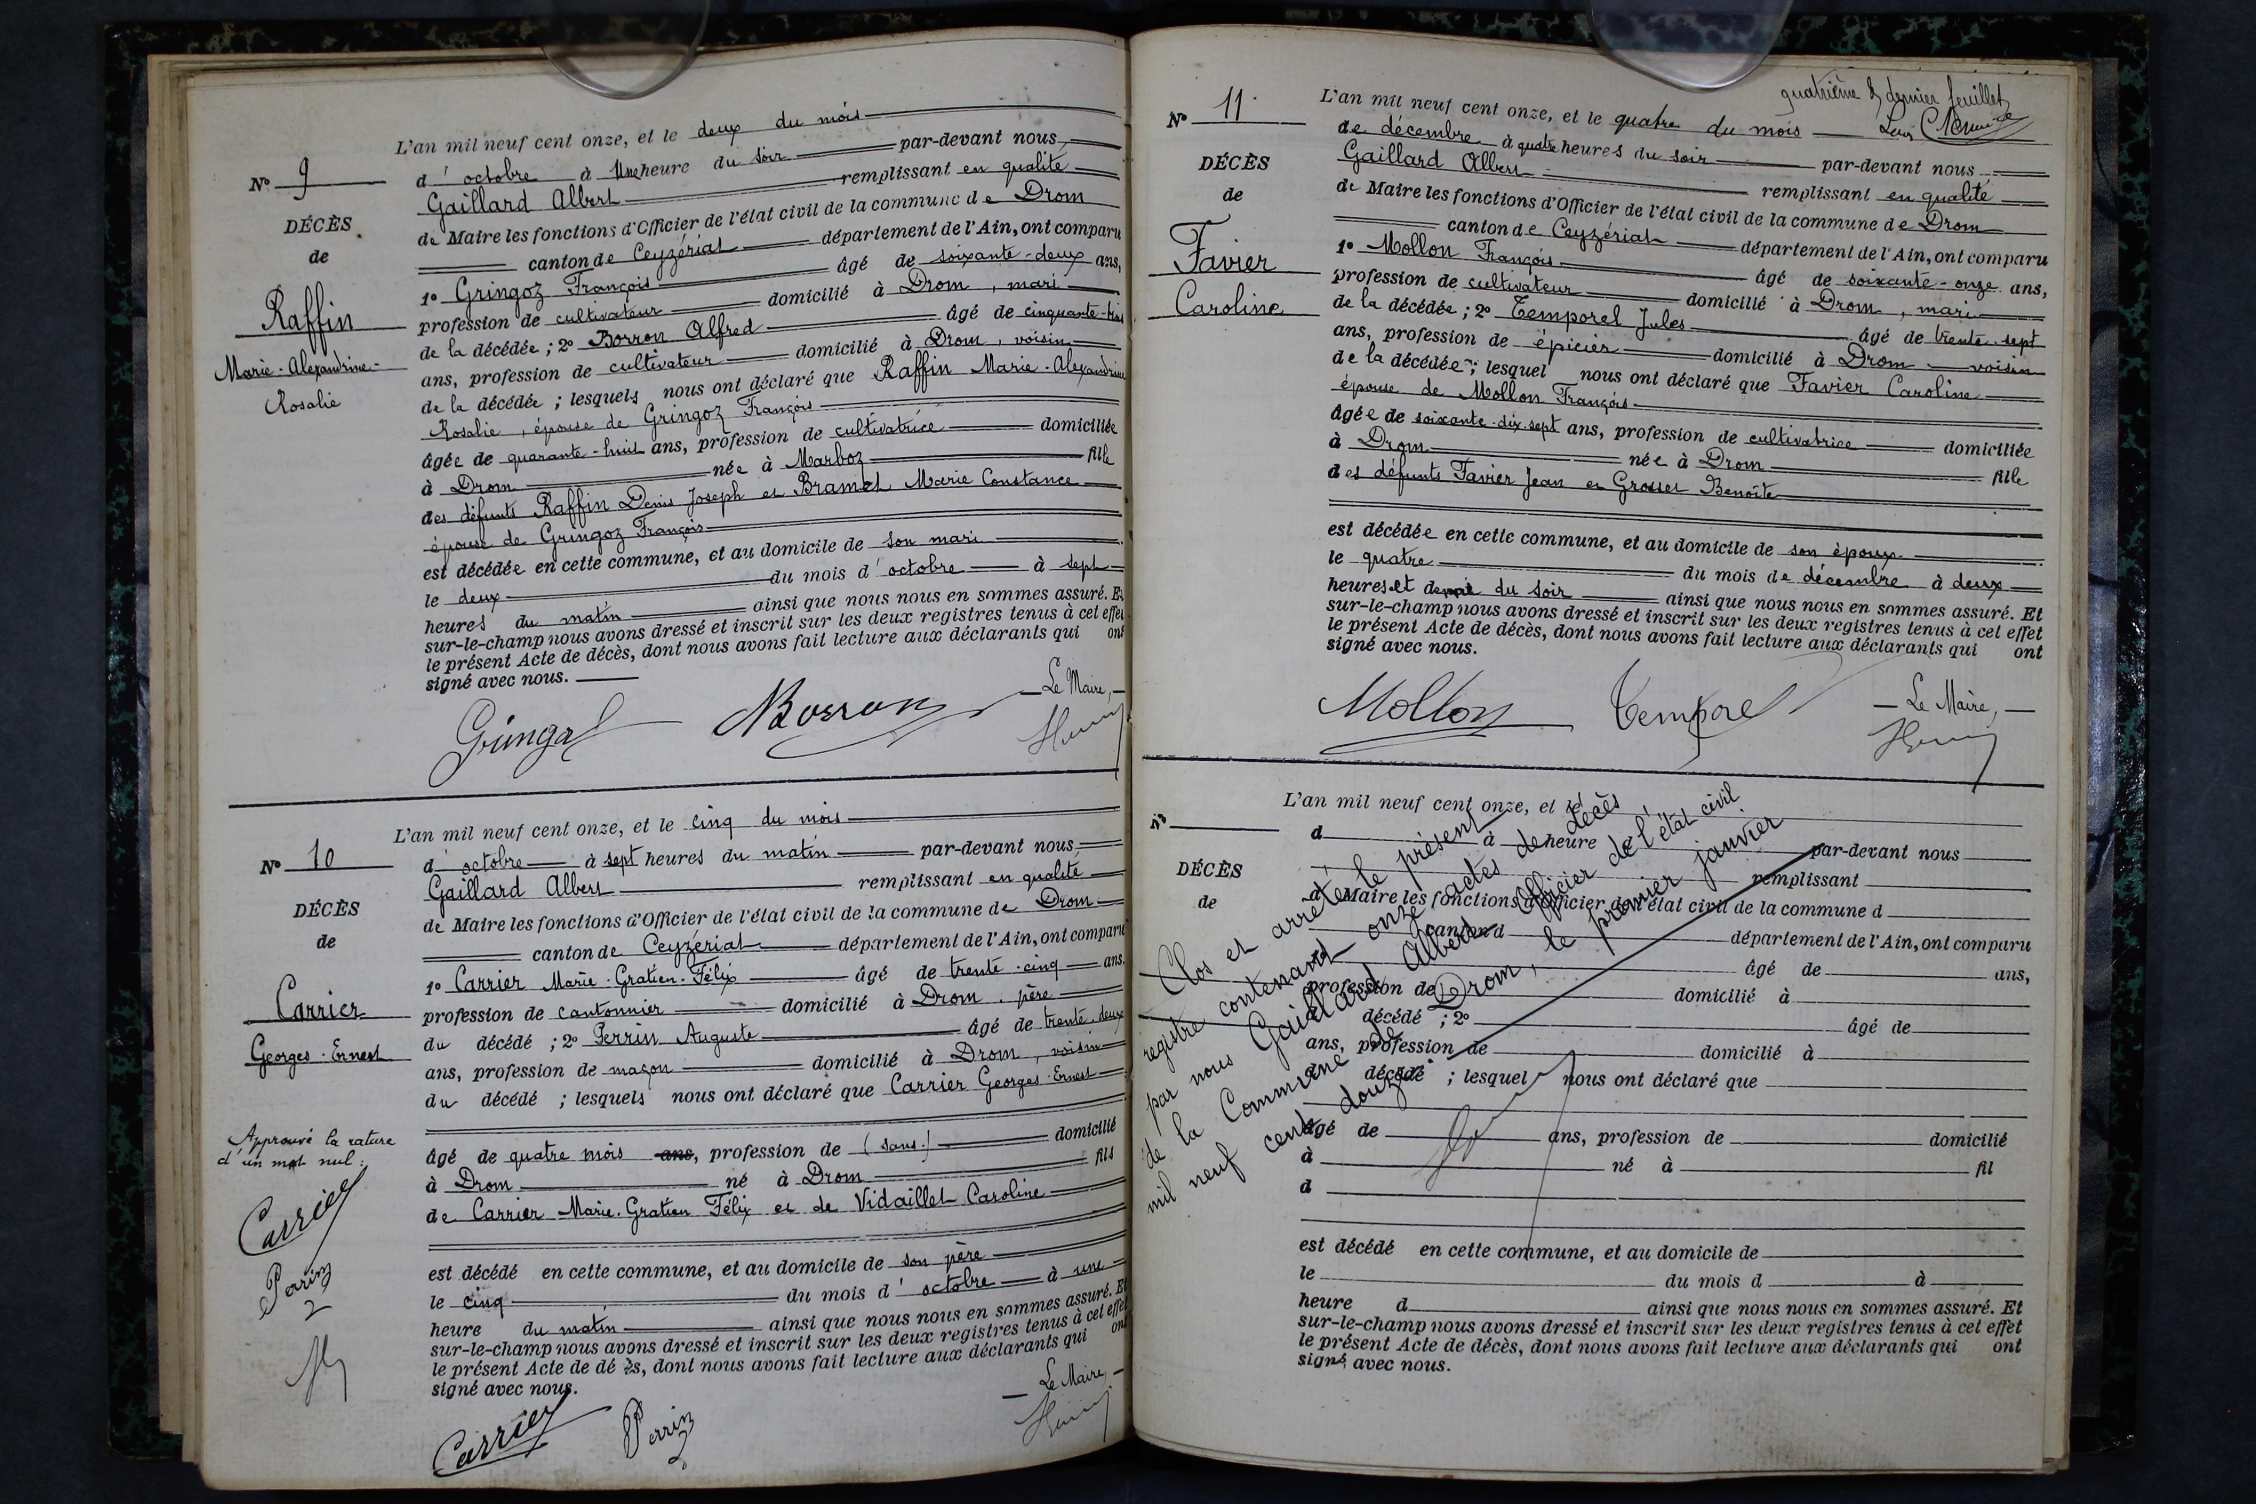 L'an mil neuf cent onze, et le deux du mois
N° 9
d'octobre à une heure du soir par-devant nous
Gaillard Albert remplissant en qualité
DÉCÈS
de Maire les fonctions d'Officier de l'état civil de la commune de Drom
de
canton de Ceyzériat département de l'Ain, ont comparu
Raffin
1° Gringoz François âgé de soixante-deux ans,
profession de cultivateur domicilié à Drom, mari
Marie-Alexandrine-
de la décédée ; 2° Borron Alfred âgé de cinquante-trois
Rosalie
ans, profession de cultivateur domicilié à Drom, voisin
de la décédée ; lesquels nous ont déclaré que Raffin Marie-Alexandrine
Rosalie, épouse de Gringoz François
âgée de quarante-huit ans, profession de cultivatrice domiciliée
à Drom née à Marboz fille
des défunts Raffin Denis Joseph et Bramet Marie Constance
épouse de Gringoz François
est décédée en cette commune, et au domicile de son mari
le deux du mois d'octobre à sept
heures du matin ainsi que nous nous en sommes assuré. Et
sur-le-champ nous avons dressé et inscrit sur les deux registres tenus à cet effet
le présent Acte de décès, dont nous avons fait lecture aux déclarants qui ont
signé avec nous.
Le Maire,
Borron
L'an mil neuf cent onze, et le cinq du mois
N° 10
d'octobre à sept heures du matin par-devant nous
Gaillard Albert remplissant en qualité
DÉCÈS
de Maire les fonctions d'Officier de l'état civil de la commune de Drom
de
canton de Ceyzériat département de l'Ain, ont comparu
1° Carrier Marie-Gratien-Félix âgé de trente-cinq ans,
Carrier
profession de cantonnier domicilié à Drom, père
du décédé ; 2° Perrin Auguste âgé de trente-deux
Georges-Ernest
ans, profession de maçon domicilié à Drom, voisin
du décédé ; lesquels nous ont déclaré que Carrier Georges-Ernest
Approuvé la rature
d'un mot nul :
âgé de quatre mois ans, profession de (sans) domicilié
à Drom né à Drom fils
de Carrier Marie-Gratien Félix et de Vidaillet Caroline
Carrier
Perrin
est décédé en cette commune, et au domicile de son père
le cinq du mois d'octobre à une
heure du matin ainsi que nous nous en sommes assuré. Et
sur-le-champ nous avons dressé et inscrit sur les deux registres tenus à cet effet
le présent Acte de décès, dont nous avons fait lecture aux déclarants qui ont
signé avec nous.
Le Maire,
Carrier Perrin
quatrième & dernier feuillet
L'an mil neuf cent onze, et le quatre du mois
N° 11
de décembre à quatre heures du soir par-devant nous
Gaillard Albert remplissant en qualité
DÉCÈS
de Maire les fonctions d'Officier de l'état civil de la commune de Drom
de
canton de Ceyzériat département de l'Ain, ont comparu
Favier
1° Mollon François âgé de soixante-onze ans,
profession de cultivateur domicilié à Drom, mari
Caroline
de la décédée ; 2° Temporel Jules âgé de trente-sept
ans, profession de épicier domicilié à Drom voisin
de la décédée ; lesquel nous ont déclaré que Favier Caroline
épouse de Mollon François
âgée de soixante-dix-sept ans, profession de cultivatrice domiciliée
à Drom née à Drom fille
des défunts Favier Jean et Grosset Benoite
est décédée en cette commune, et au domicile de son époux
le quatre du mois de décembre à deux
heures et demie du soir ainsi que nous nous en sommes assuré. Et
sur-le-champ nous avons dressé et inscrit sur les deux registres tenus à cet effet
le présent Acte de décès, dont nous avons fait lecture aux déclarants qui ont
signé avec nous.
Mollon Temporel
Le Maire,
L'an mil neuf cent onze, et le
N°
d à heure par-devant nous
remplissant
DÉCÈS
d Maire les fonctions d'Officier de l'état civil de la commune d
de
canton d département de l'Ain, ont comparu
âgé de ans,
profession de domicilié à
décédé ; 2° âgé de
ans, profession de domicilié à
d décédé ; lesquel nous ont déclaré que
âgé de ans, profession de domicilié
à né à fil
d
est décédé en cette commune, et au domicile de
le du mois d à
heure d ainsi que nous nous en sommes assuré. Et
sur-le-champ nous avons dressé et inscrit sur les deux registres tenus à cet effet
le présent Acte de décès, dont nous avons fait lecture aux déclarants qui ont
signé avec nous.
Clos et arrêté le présent
registre contenant onze actes de décès
par nous Gaillard Albert Officier de l'état civil
de la Commune de Drom, le premier janvier
mil neuf cent douze.